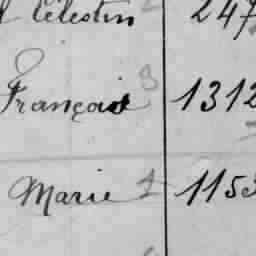 Célestin 2 247
François 3 1312
Marie 1 1153